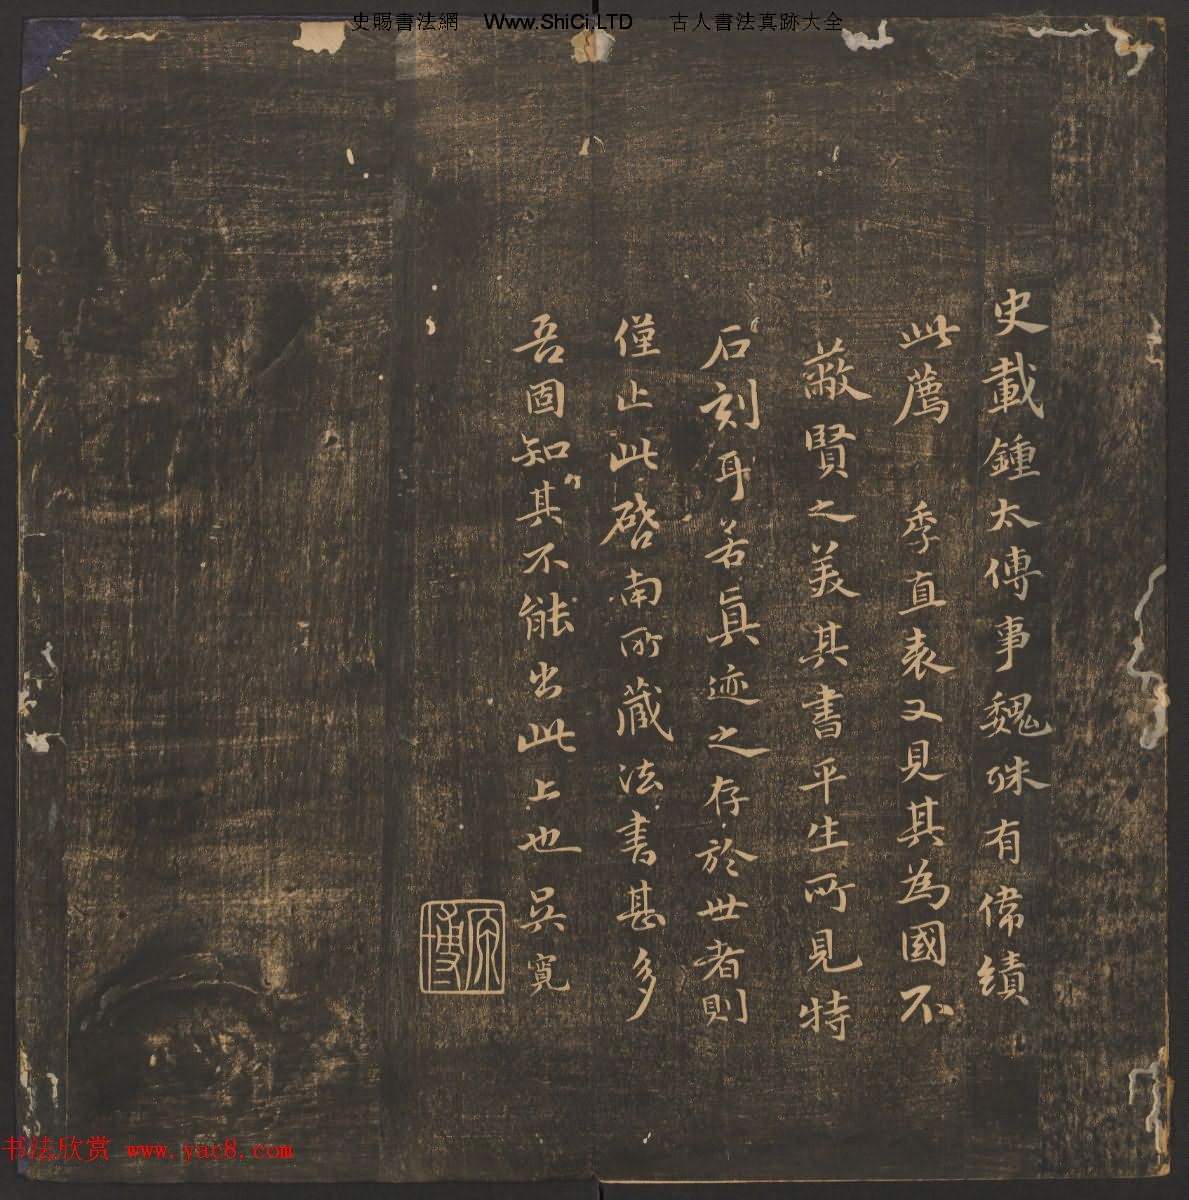 史賜書法網 Www.ShiCi.LTD 古人書法真跡大全
史載鍾太傅事魏殊有偉績
此薦 季直表又見其為國不
蔽賢之美其書平生所見特
石刻耳若真迹之存於世者則
僅止此啓南所藏法書甚多
吾固知其不能出此上也吳寬
原博
书法欣赏 www.yac8.com